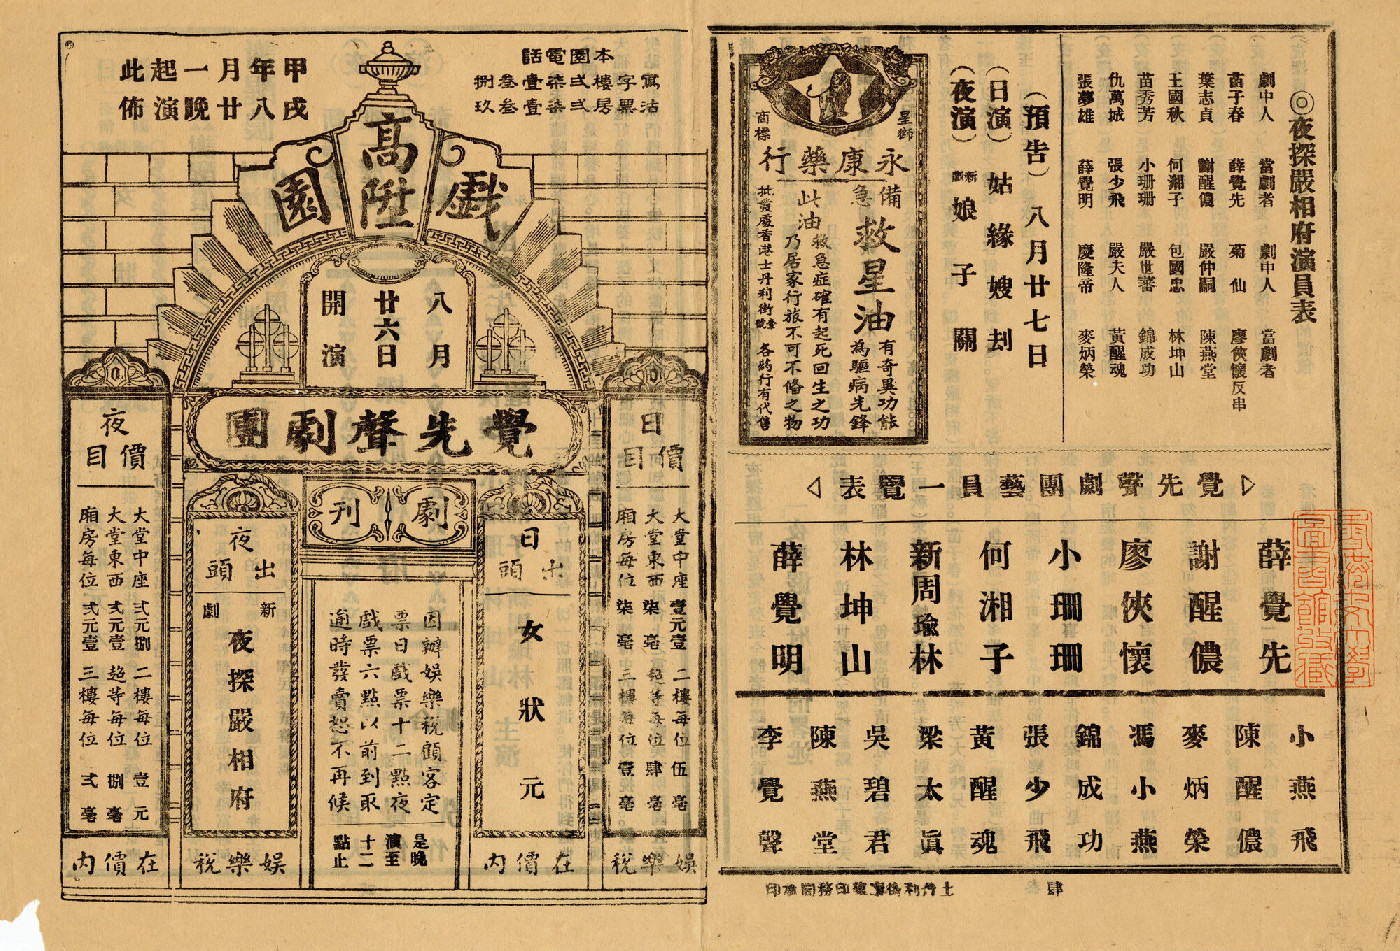 ◎夜探嚴相府演員表
劇中人 當劇者 劇中人 當劇者
苗子春 薛覺先 菊仙 廖俠懷反串
葉志貞 謝醒儂 嚴仲嗣 陳燕堂
王國秋 何湘子 包國忠 林坤山
苗秀芳 小珊珊 嚴世蕃 錦成功
仇萬城 張少飛 嚴夫人 黃醒魂
張夢雄 薛覺明 慶隆帝 麥炳榮
(預告) 八月廿七日
(日演) 姑緣嫂刦
(夜演) 新劇 娘子關
星獅
商標
永康藥行
備急救星油
有奇異功能
為驅病先鋒
此油救急症確有起死回生之功
乃居家行旅不可不備之物
批發處香港士丹利街
各藥行有代售
覺先聲劇團藝員一覽表
薛覺先
謝醒儂
廖俠懷
小珊珊
何湘子
新周瑜林
林坤山
薛覺明
小燕飛
陳醒儂
麥炳榮
馮小燕
錦成功
張少飛
黃醒魂
梁太眞
吳碧君
陳燕堂
李覺聲
肆
本園電話
寫字樓弍柒壹叁捌
沽票房弍柒壹叁玖
甲戌年八月廿一晚起演此佈
高陞戲園
八月
廿六日
開演
覺先聲劇團
劇刊
日價目
大堂中座 壹元壹 二樓每位 伍毫
大堂東西 柒毫 超等每位 肆毫
廂房每位 柒毫 三樓每位 壹毫
娛樂稅
在價內
日出頭
女狀元
因辦娛樂稅顧客定
票日戲票十二點夜
戲票六點以前到取
逾時發賣恕不再候
是晚
演至
十二
點止
夜出頭
新劇
夜探嚴相府
夜價目
大堂中座 弍元捌 二樓每位 壹元
大堂東西 弍元壹 超等每位 捌毫
廂房每位 弍元壹 三樓每位 弍毫
娛樂稅
在價內